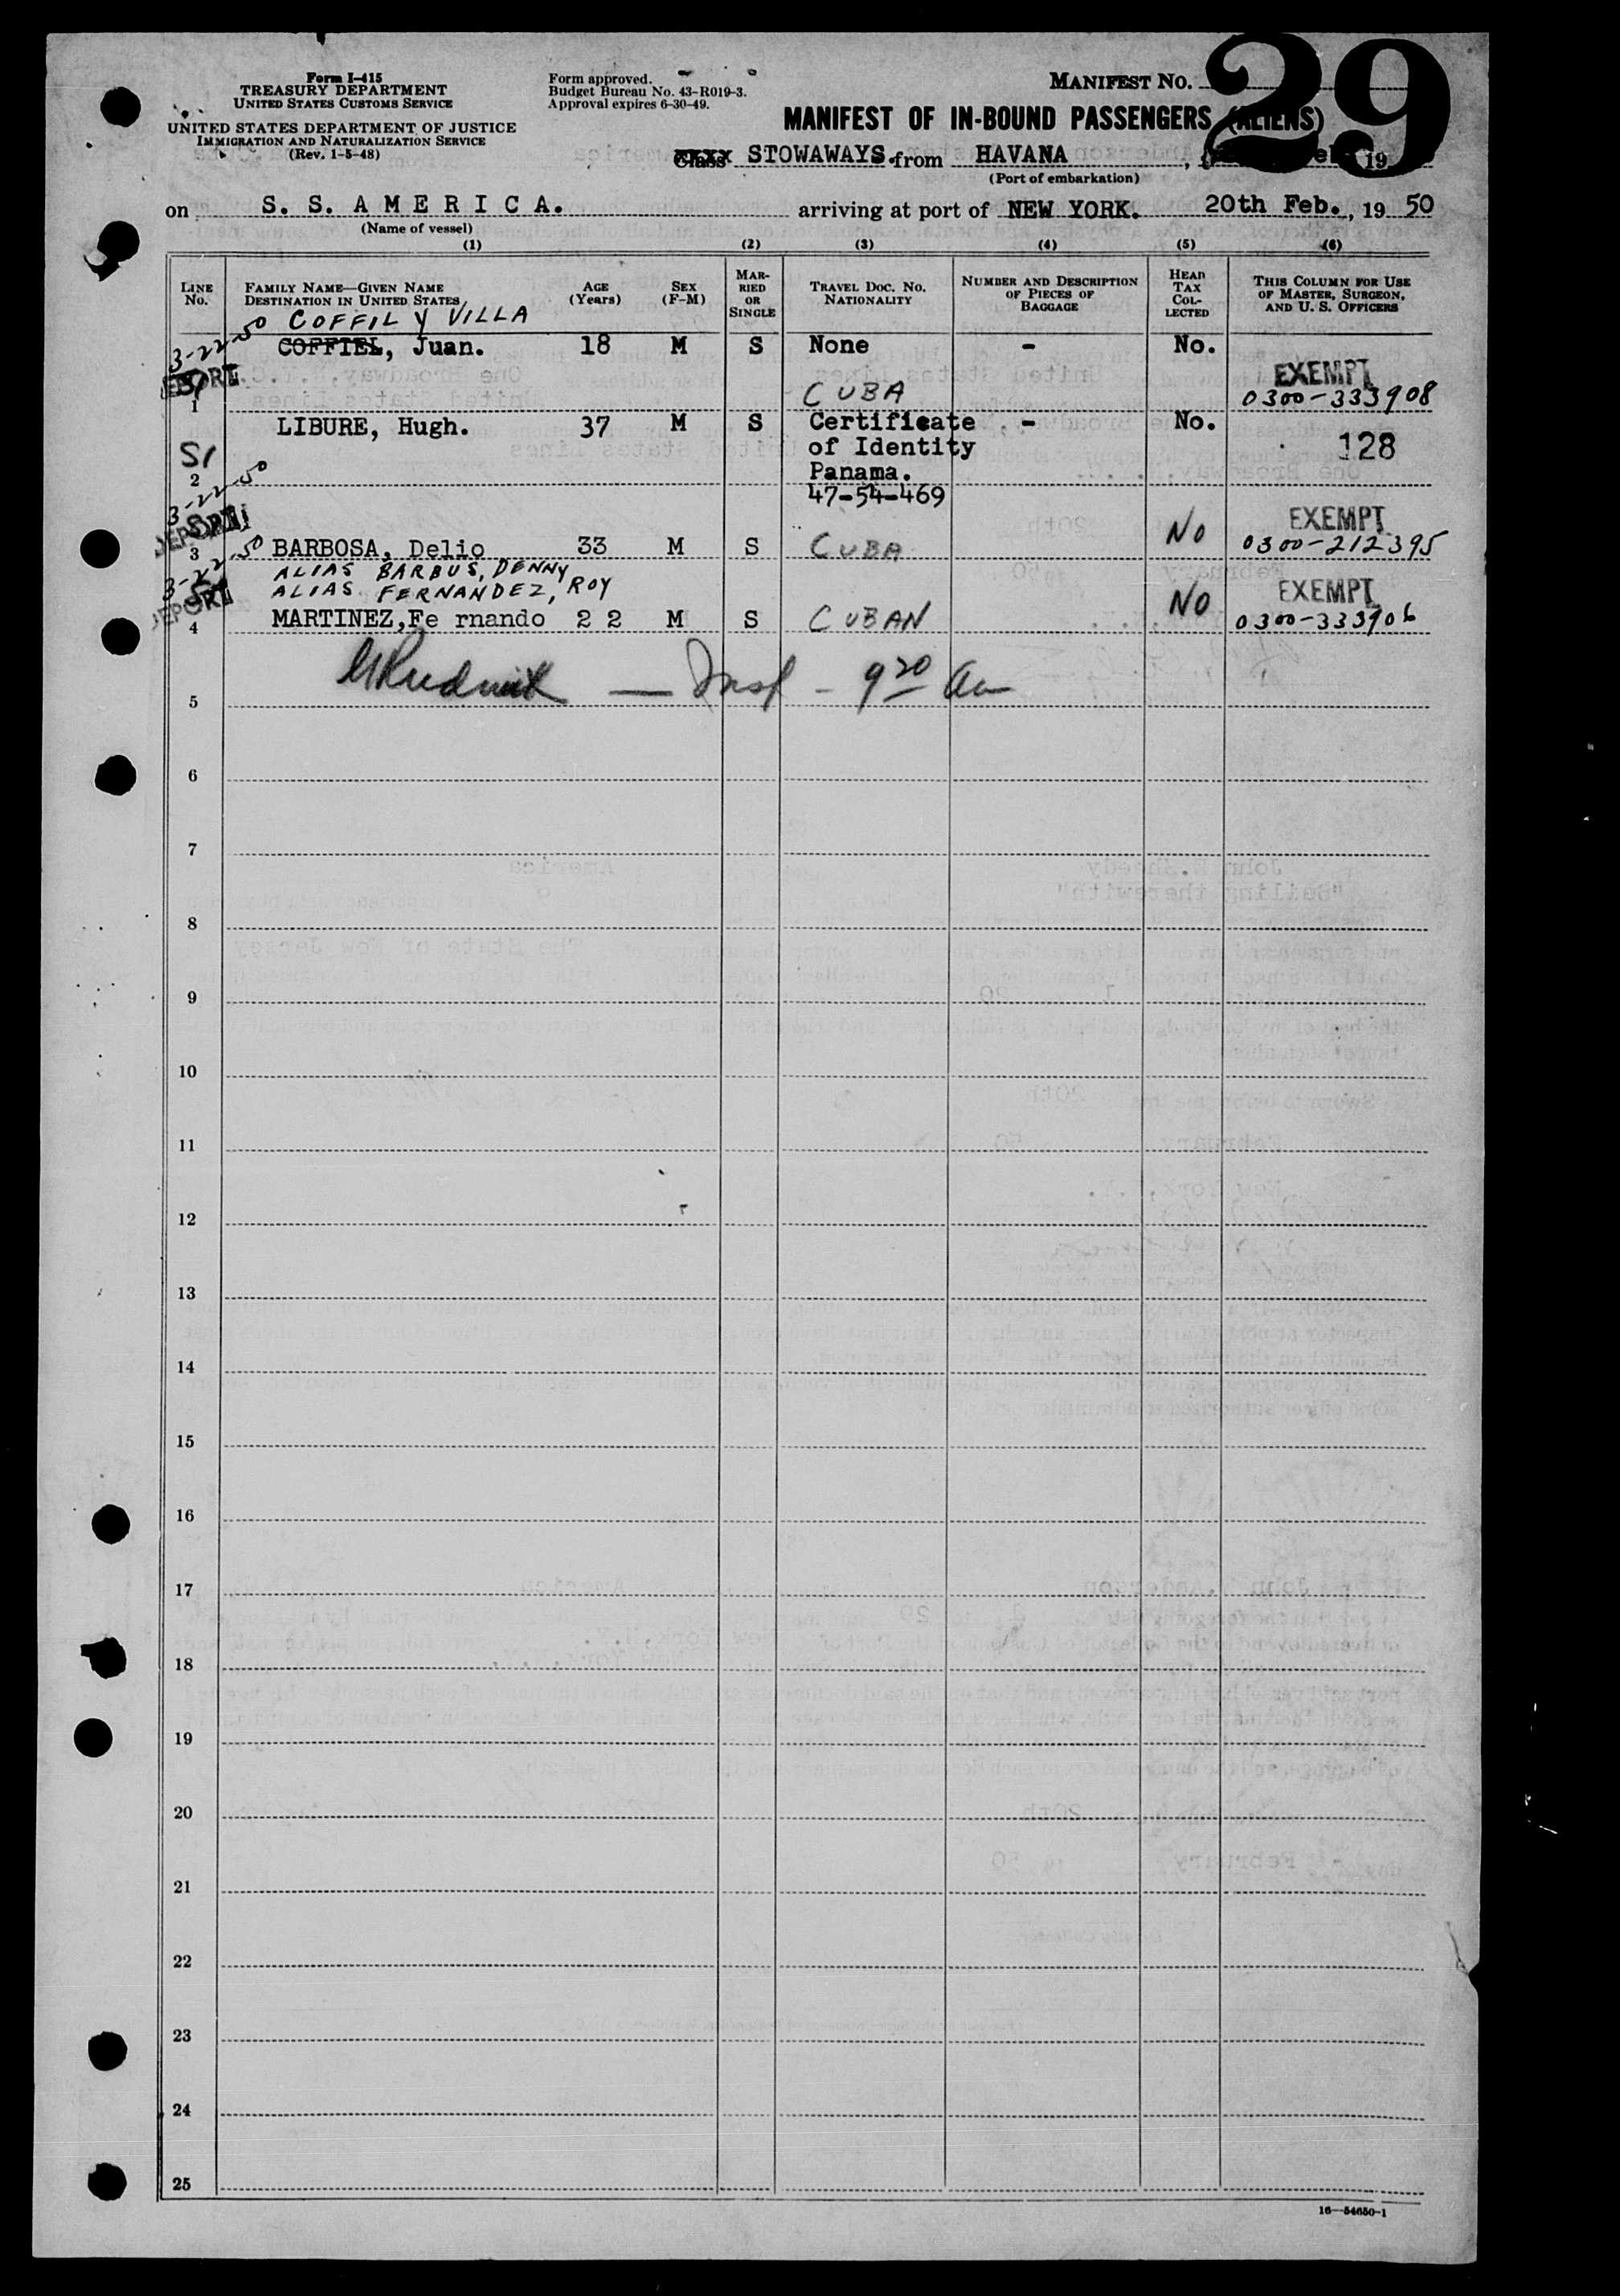 29
Form I-415
TREASURY DEPARTMENT
UNITED STATES CUSTOMS SERVICE
UNITED STATES DEPARTMENT OF JUSTICE
IMMIGRATION AND NATURALIZATION SERVICE
(Rev. 1-5-48)
Form approved.
Budget Bureau No. 43-R019-3.
Approval expires 6-30-49.
MANIFEST NO.
MANIFEST OF IN-BOUND PASSENGERS (ALIENS)
Class STOWAWAYS. from HAVANA , 19
(Port of embarkation)
on S. S. A M E R I C A. arriving at port of NEW YORK. 20th Feb., 19 50
(Name of vessel)
(1) (2) (3) (4) (5) (6)
LINE No.
FAMILY NAME—GIVEN NAME
DESTINATION IN UNITED STATES
AGE (Years)
SEX (F-M)
MARRIED OR SINGLE
TRAVEL DOC. NO. NATIONALITY
NUMBER AND DESCRIPTION OF PIECES OF BAGGAGE
HEAD TAX COLLECTED
THIS COLUMN FOR USE OF MASTER, SURGEON, AND U. S. OFFICERS
3-22-50 COFFIL Y VILLA
COFFIEL, Juan. 18 M S None - No.
EXEMPT
1 CUBA 0300-333908
LIBURE, Hugh. 37 M S Certificate - No.
SI of Identity 128
2 Panama.
3-22-50 47-54-469
EXEMPT
3 BARBOSA, Delio 33 M S CUBA No 0300-212395
ALIAS BARBUS, DENNY
3-22-50 ALIAS FERNANDEZ, ROY EXEMPT
4 MARTINEZ,Fe rnando 2 2 M S CUBAN No 0300-333906
5 Insp - 9 20 am
6
7
8
9
10
11
12
13
14
15
16
17
18
19
20
21
22
23
24
25
16—54650-1